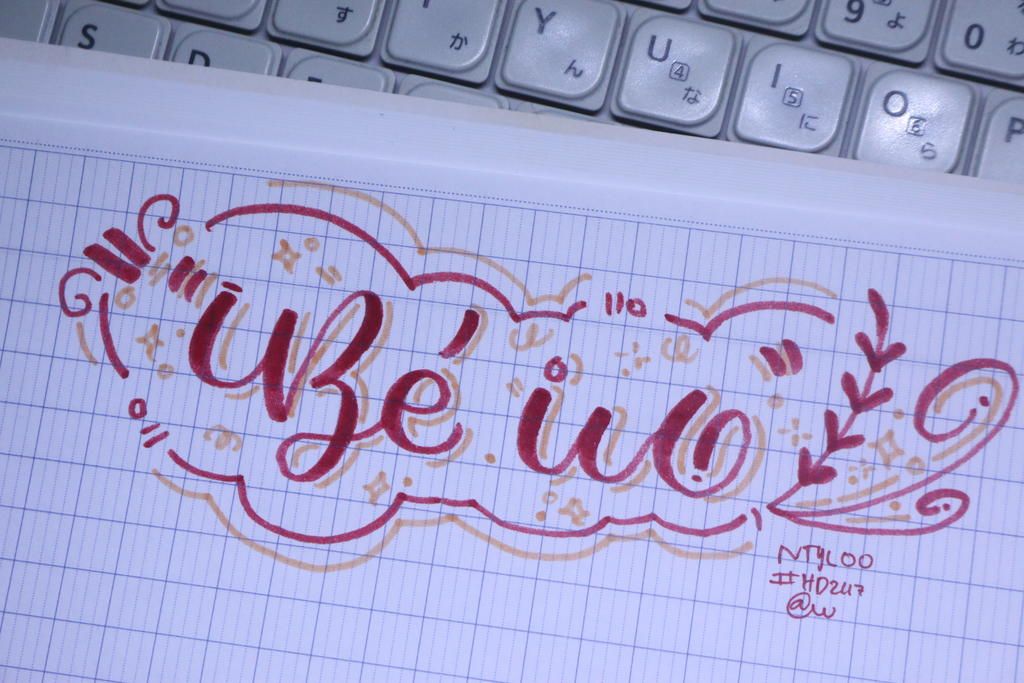 す
か
9 よ
0 わ
S
D
Y ん
U 4 な
I 5 に
O 6 ら
P
Bé iu
NTYLOO
#HD247